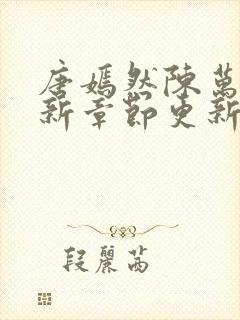 唐嫣然陳萬
新章節更新
段麗茜